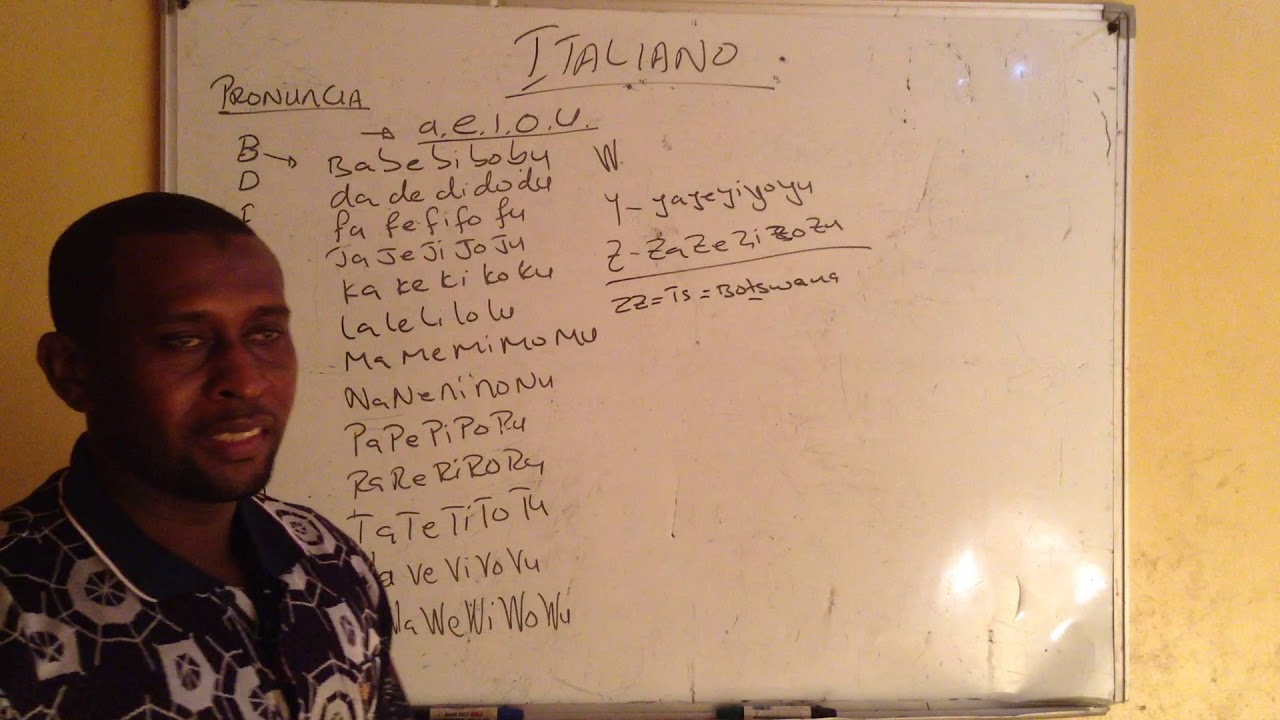 ITALIANO
PRONUNCIA
→ a.e.i.o.u.
B → Ba be bi bo bu
D da de di do du
F fa fe fi fo fu
Ja Je Ji Jo Ju
ka ke ki ko ku
la le li lo lu
Ma Me Mi Mo Mu
Na Ne ni no Nu
Pa Pe Pi Po Pu
Ra Re Ri Ro Ru
Ta Te Ti To Tu
Va Ve Vi Vo Vu
Wa We Wi Wo Wu
W.
Y - yayeyiyoyu
Z - Za Ze Zi Zo Zu
ZZ = Ts = Botswana